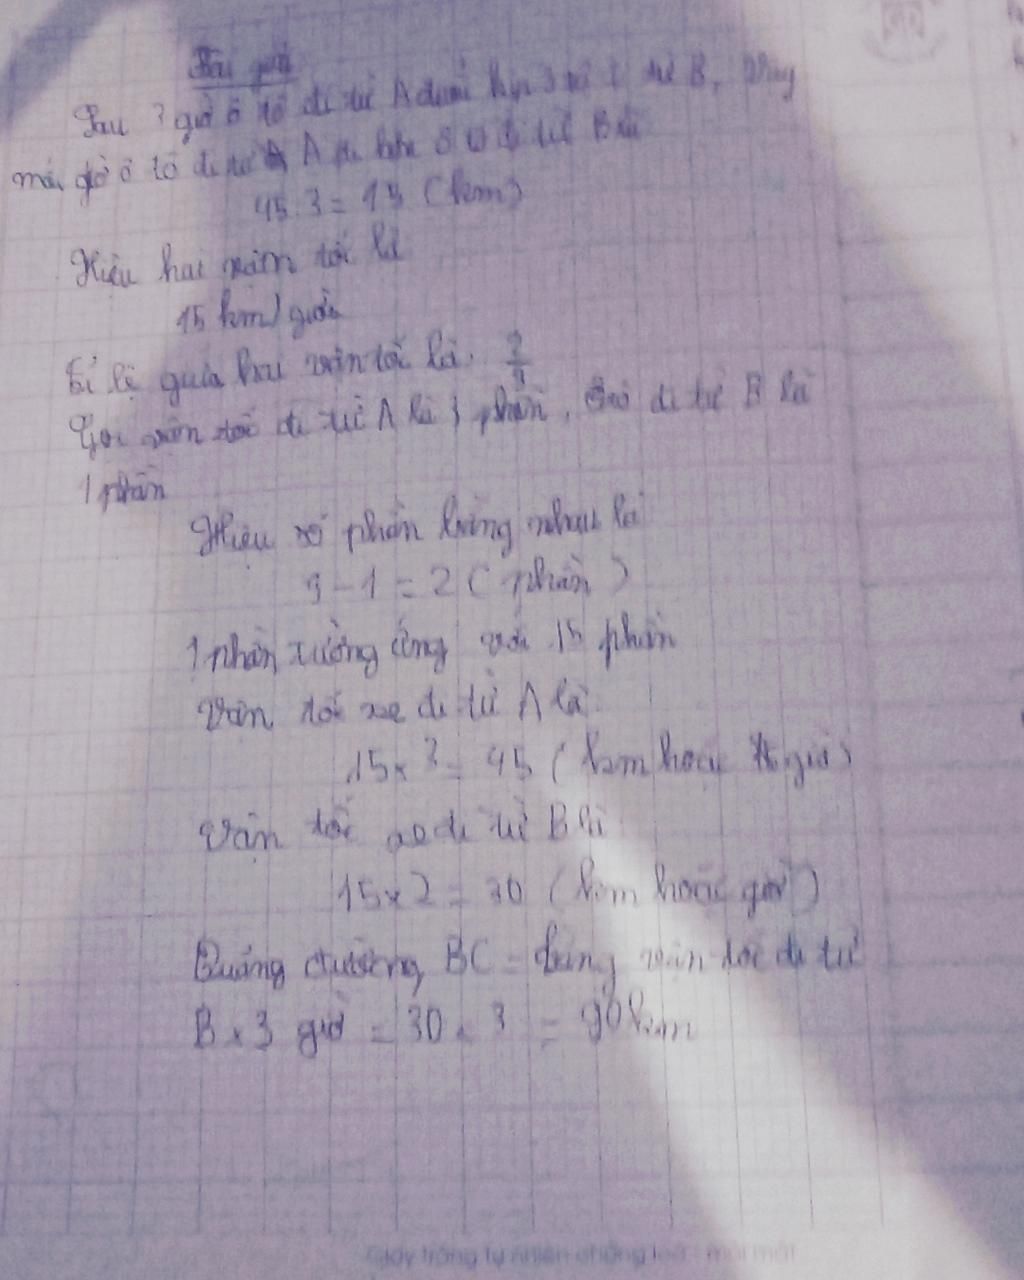 Bài giải
Sau 3 giờ ô tô đi từ A đuổi kịp ô tô đi từ B, vậy
mỗi giờ ô tô đi từ A đi hơn ô tô đi từ B là
45:3 = 15 (km)
Hiệu hai vận tốc là
15 km/giờ
Tỉ lệ giữa hai vận tốc là
Gọi vận tốc đi từ A là 3 phần, đi từ B là
1 phần
Hiệu số phần bằng nhau là
3 - 1 = 2 (phần)
1 phần tương ứng với 15 phần
Vận tốc xe đi từ A là
15 x 3 = 45 (km hoặc giờ)
Vận tốc xe đi từ B là
15 x 2 = 30 (km hoặc giờ)
Quãng đường BC = bằng vận tốc đi từ
B x 3 giờ = 30 x 3 = 90 km
Giấy trắng tự nhiên chống loá - mỏi mắt